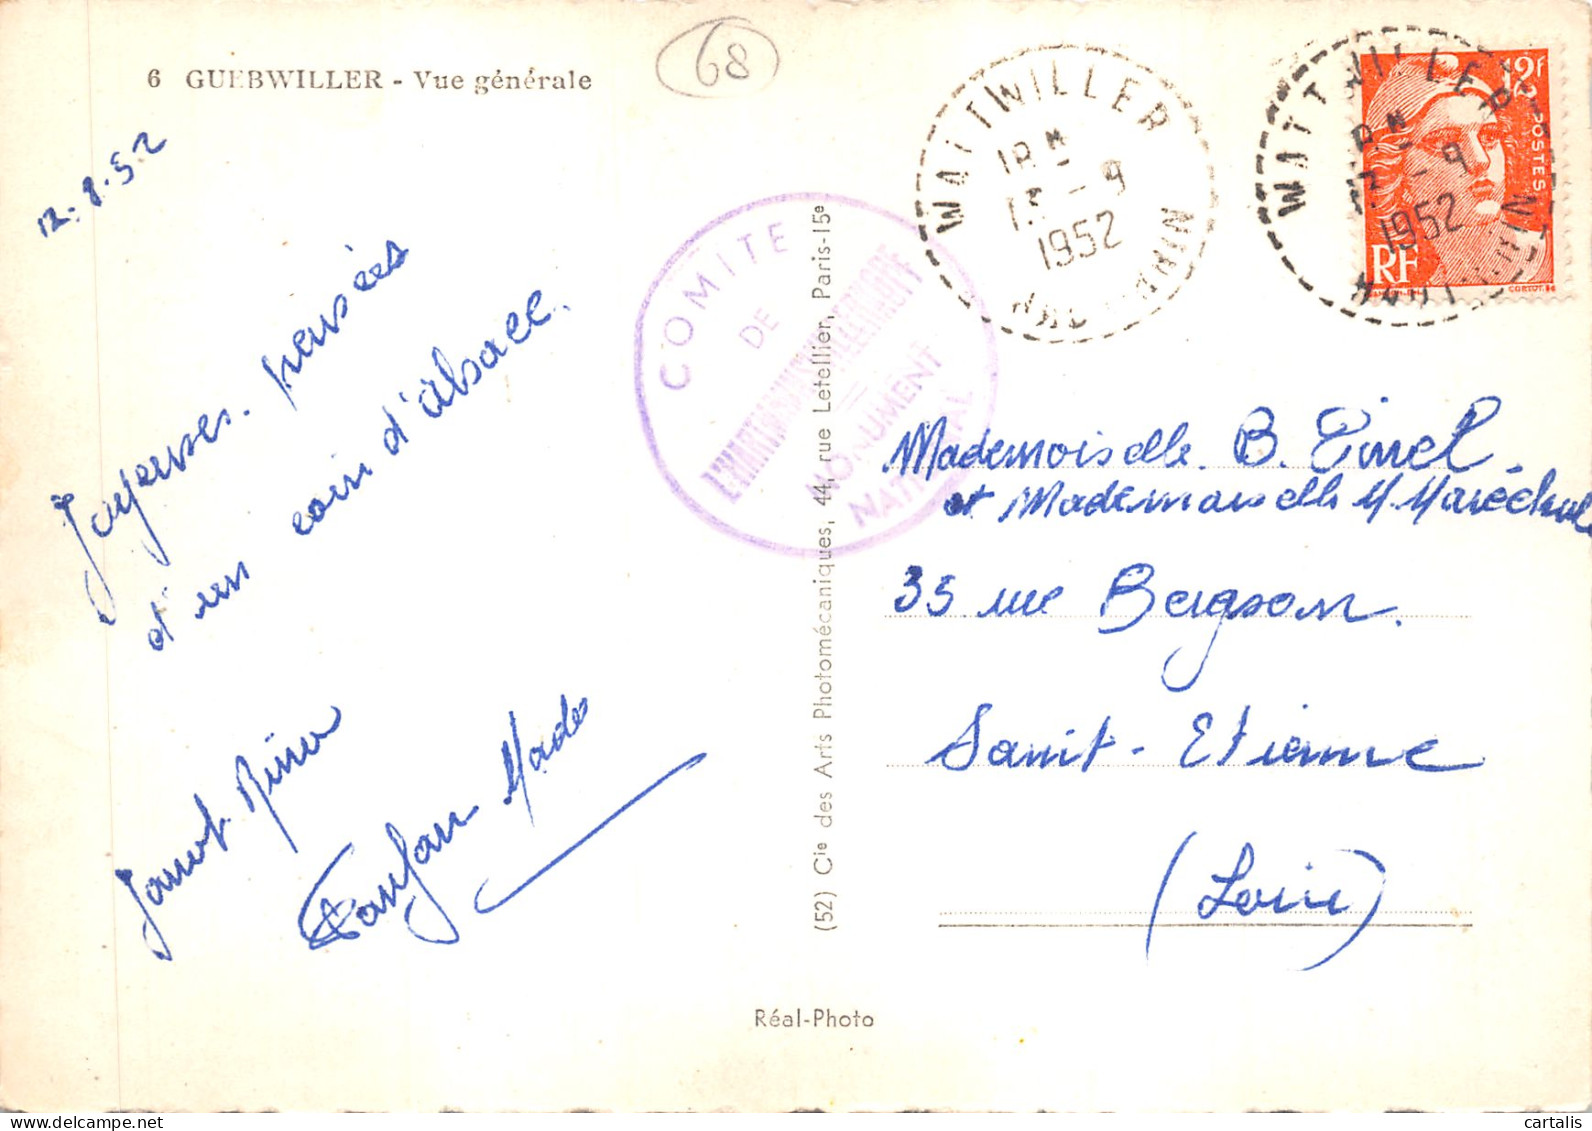 6 GUEBWILLER - Vue générale
68
12.8.52
Joyeuses pensées
d'un coin d'Alsace.
(52) Cie des Arts Photomécaniques, 44, rue Letellier, Paris-15e
Réal-Photo
COMITE
DE
L'HARTMANNSWILLERKOPF
MONUMENT
NATIONAL
WATTWILLER
18H
13-9
1952
HAUT-RHIN
WATTWILLER
18H
13-9
1952
HAUT-RHIN
12F
POSTES
RF
Mademoiselle B. Pinel
et Mademoiselle M. Marechal
35 rue Bergson.
Saint-Etienne
(Loire)
cartalis